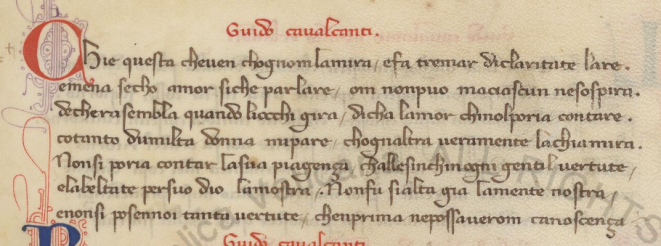 Guido caualcanti.
Chie questa cheuen chognom lamira / efa tremar diclaritate lare.
emena secho amor siche parlare / om nonpuo maciascun nesospira.
decherasembla quando liocchi gira / dicha lamor chinolporia contare.
cotanto dumilta donna mipare / chognaltra ueramente lachiamira.
Nonsi poria contar lasua piagença / challesinchin ogni gentil uertute /
elabeltate persuo dio lamostra. Non fu sialta gia lamente nostra
enonsi posennoi tanta uertute / chenprima nepossauerom canoscença
Guido caualcanti